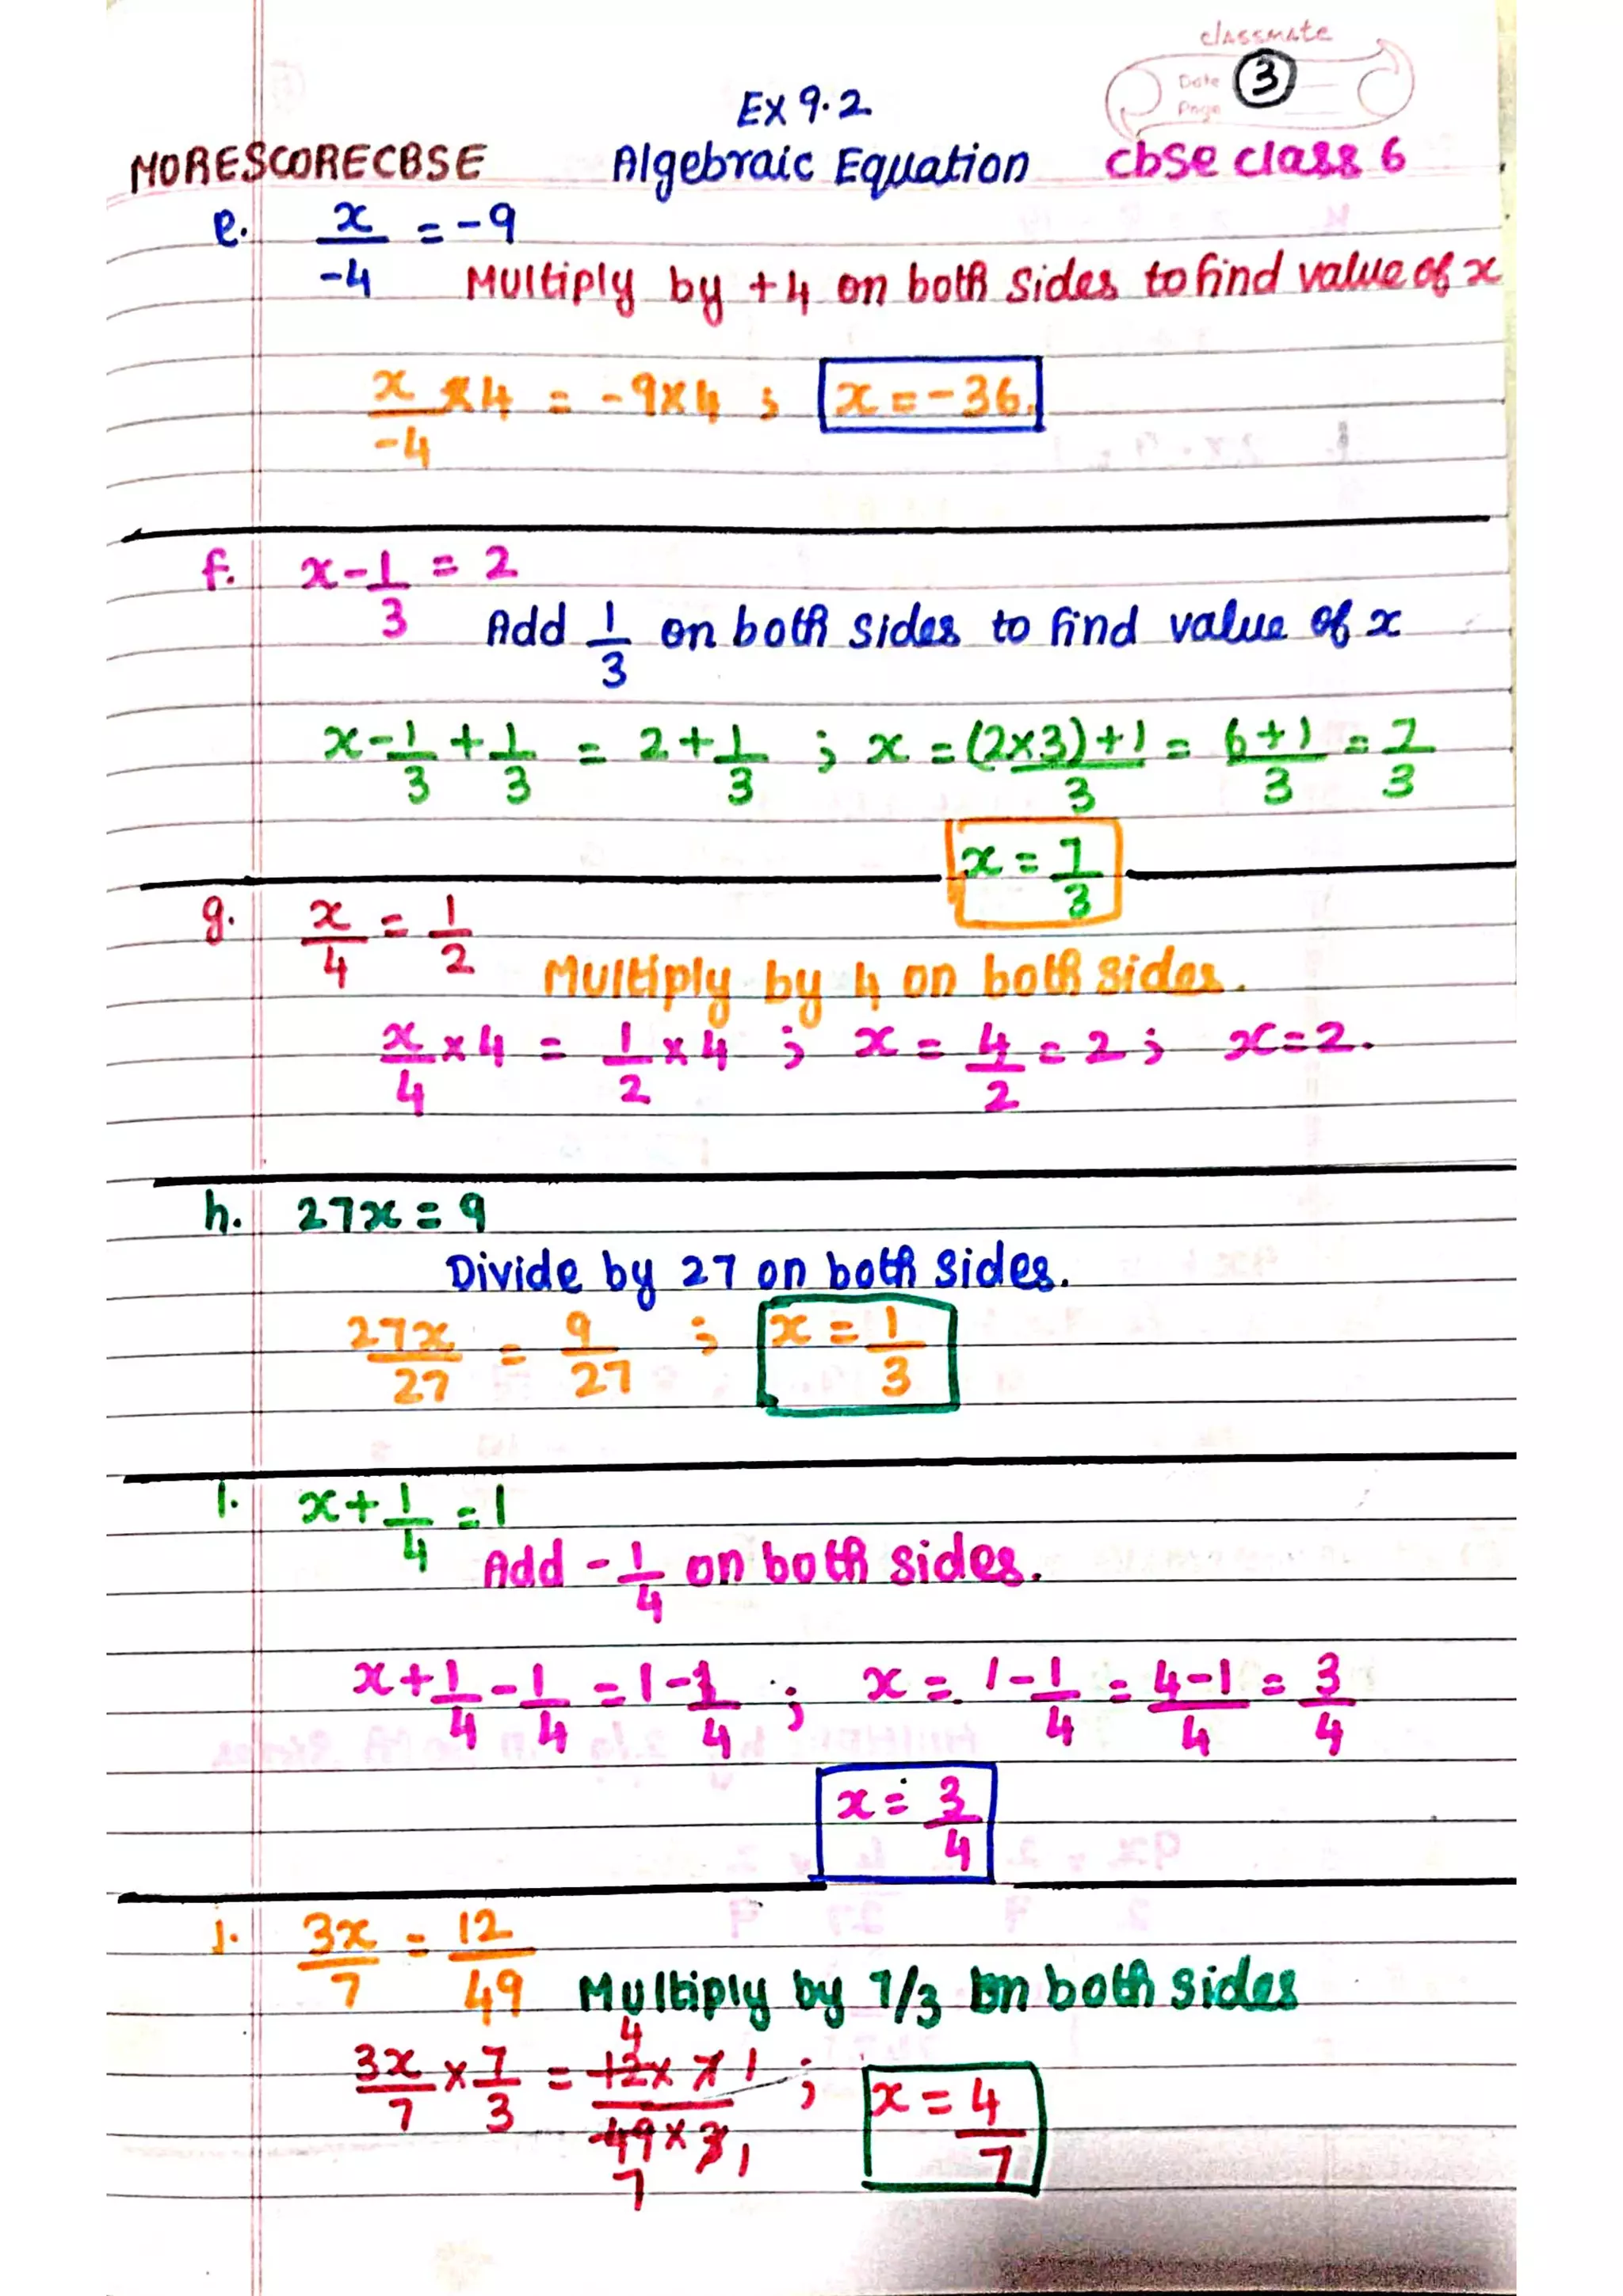 classmate
Date 3
Page
Ex 9.2
MORESCORECBSE Algebraic Equation cbse class 6
e. x/-4 = -9
Multiply by +4 on both sides to find value of x
x/-4 × 4 = -9×4 ; x = -36.
f. x - 1/3 = 2
Add 1/3 on both sides to find value of x
x - 1/3 + 1/3 = 2 + 1/3 ; x = (2×3)+1/3 = 6+1/3 = 7/3
x = 7/3
g. x/4 = 1/2
Multiply by 4 on both sides.
x/4 × 4 = 1/2 × 4 ; x = 4/2 = 2 ; x = 2.
h. 27x = 9
Divide by 27 on both sides.
27x/27 = 9/27 ; x = 1/3
i. x + 1/4 = 1
Add - 1/4 on both sides.
x + 1/4 - 1/4 = 1 - 1/4 ; x = 1 - 1/4 = 4-1/4 = 3/4
x = 3/4
j. 3x/7 = 12/49
Multiply by 7/3 on both sides
4
3x/7 × 7/3 = 12 × 7 1/49 × 3 1 ; x = 4/7
7